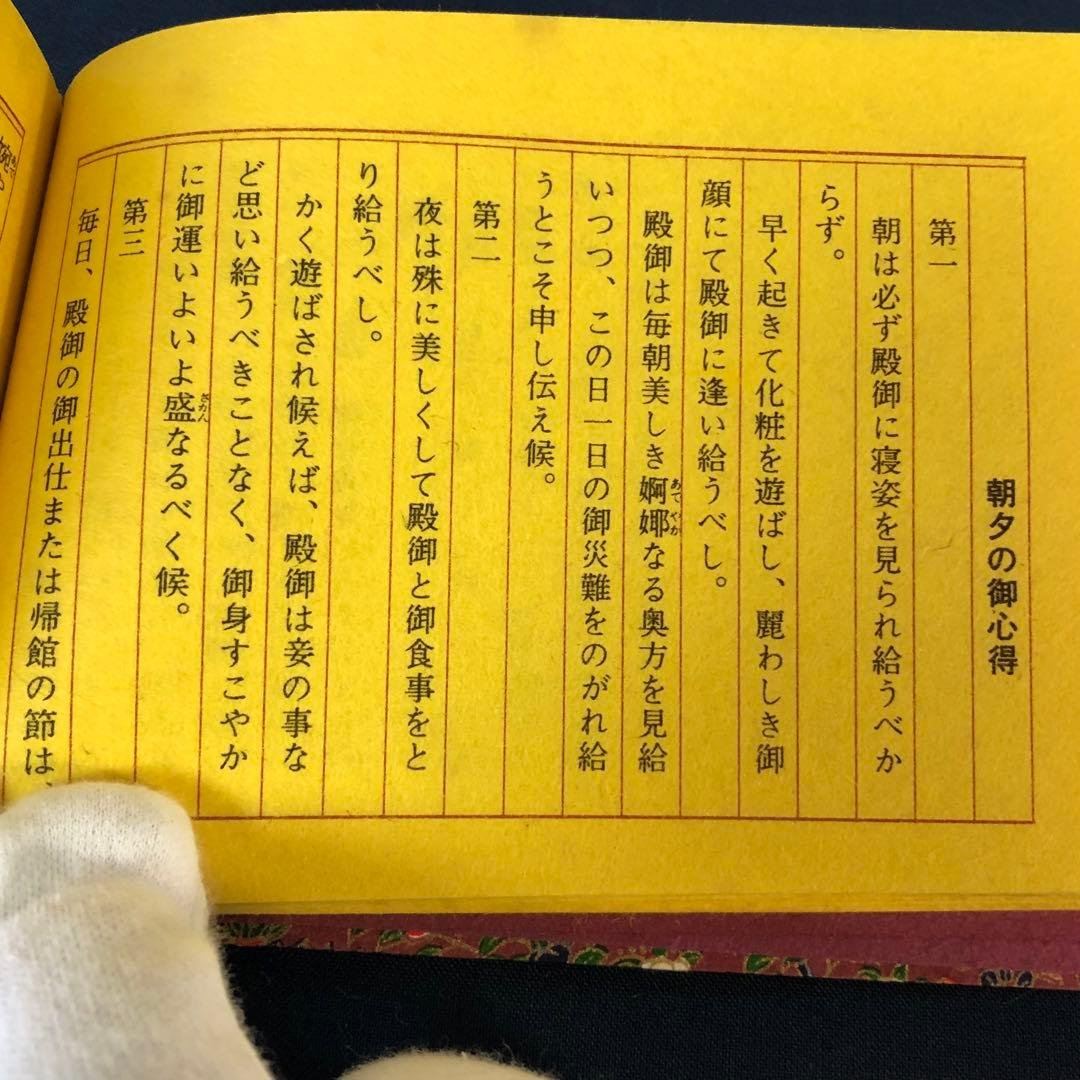 朝夕の御心得
第一
朝は必ず殿御に寝姿を見られ給うべか
らず。
早く起きて化粧を遊ばし、麗わしき御
顔にて殿御に逢い給うべし。
殿御は毎朝美しき婀娜なる奥方を見給
いつつ、この日一日の御災難をのがれ給
うとこそ申し伝え候。
第二
夜は殊に美しくして殿御と御食事をと
り給うべし。
かく遊ばされ候えば、殿御は妾の事な
ど思い給うべきことなく、御身すこやか
に御運いよいよ盛なるべく候。
第三
毎日、殿御の御出仕または帰館の節は、